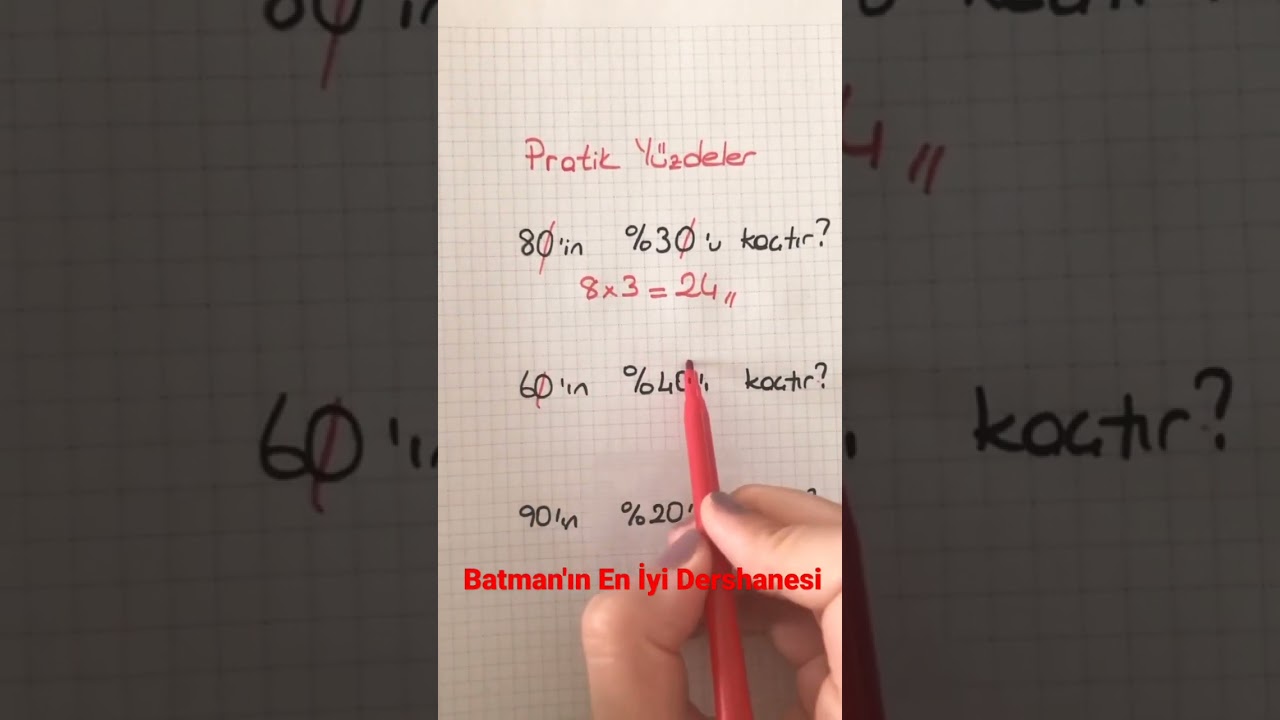 Pratik Yüzdeler
80'in %30'u kaçtır?
8x3=24//
60'ın %40'ı kaçtır?
90'ın %20'
Batman'ın En İyi Dershanesi